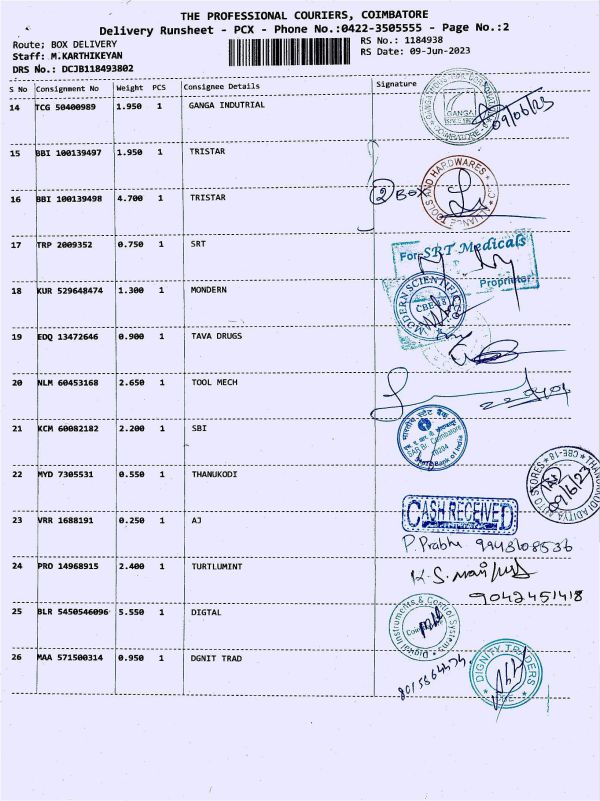 THE PROFESSIONAL COURIERS, COIMBATORE
Delivery Runsheet - PCX - Phone No.:0422-3505555 - Page No.:2
Route; BOX DELIVERY RS No.: 1184938
Staff: M.KARTHIKEYAN RS Date: 09-Jun-2023
DRS No.: DCJB118493802
S No Consignment No Weight PCS Consignee Details Signature
14 TCG 50400989 1.950 1 GANGA INDUTRIAL
GANGA
09/06/23
15 BBI 100139497 1.950 1 TRISTAR
TOOLS AND HARDWARES
16 BBI 100139498 4.700 1 TRISTAR
2 BOX
17 TRP 2009352 0.750 1 SRT
For SRT Medicals
Proprietor
18 KUR 529648474 1.300 1 MONDERN
MODERN SCIENTIFIC
19 EDQ 13472646 0.900 1 TAVA DRUGS
20 NLM 60453168 2.650 1 TOOL MECH
21 KCM 60082182 2.200 1 SBI
भारतीय स्टेट बैंक
State Bank of India
22 MYD 7305531 0.550 1 THANUKODI
AUTO STORES CBE-18
09/6/23
23 VRR 1688191 0.250 1 AJ
CASH RECEIVED
P. Prabhu 9943608536
24 PRO 14968915 2.400 1 TURTLUMINT
9042451418
25 BLR 5450546096 5.550 1 DIGTAL
Digital Instruments & Control Systems
26 MAA 571500314 0.950 1 DGNIT TRAD
DIGNITY TRADERS